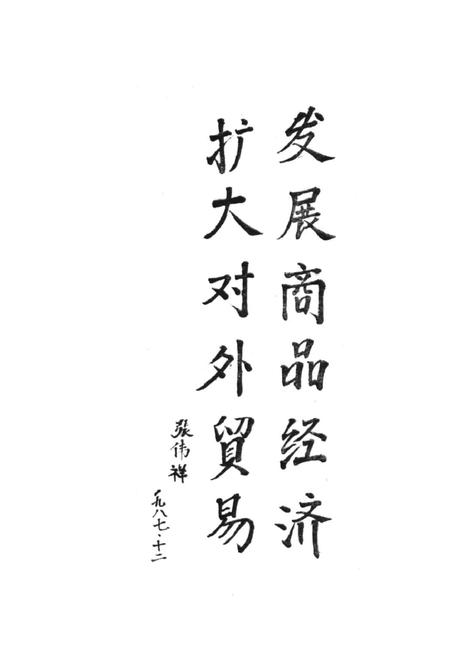 发展商品经济
扩大对外貿易
張伟祥
一九八七·十二